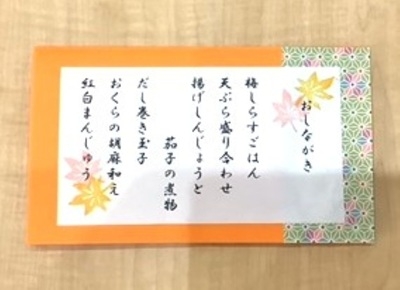 おしながき
梅しらすごはん
天ぷら盛り合わせ
揚げしんじょうと
茄子の煮物
だし巻き玉子
おくらの胡麻和え
紅白まんじゅう